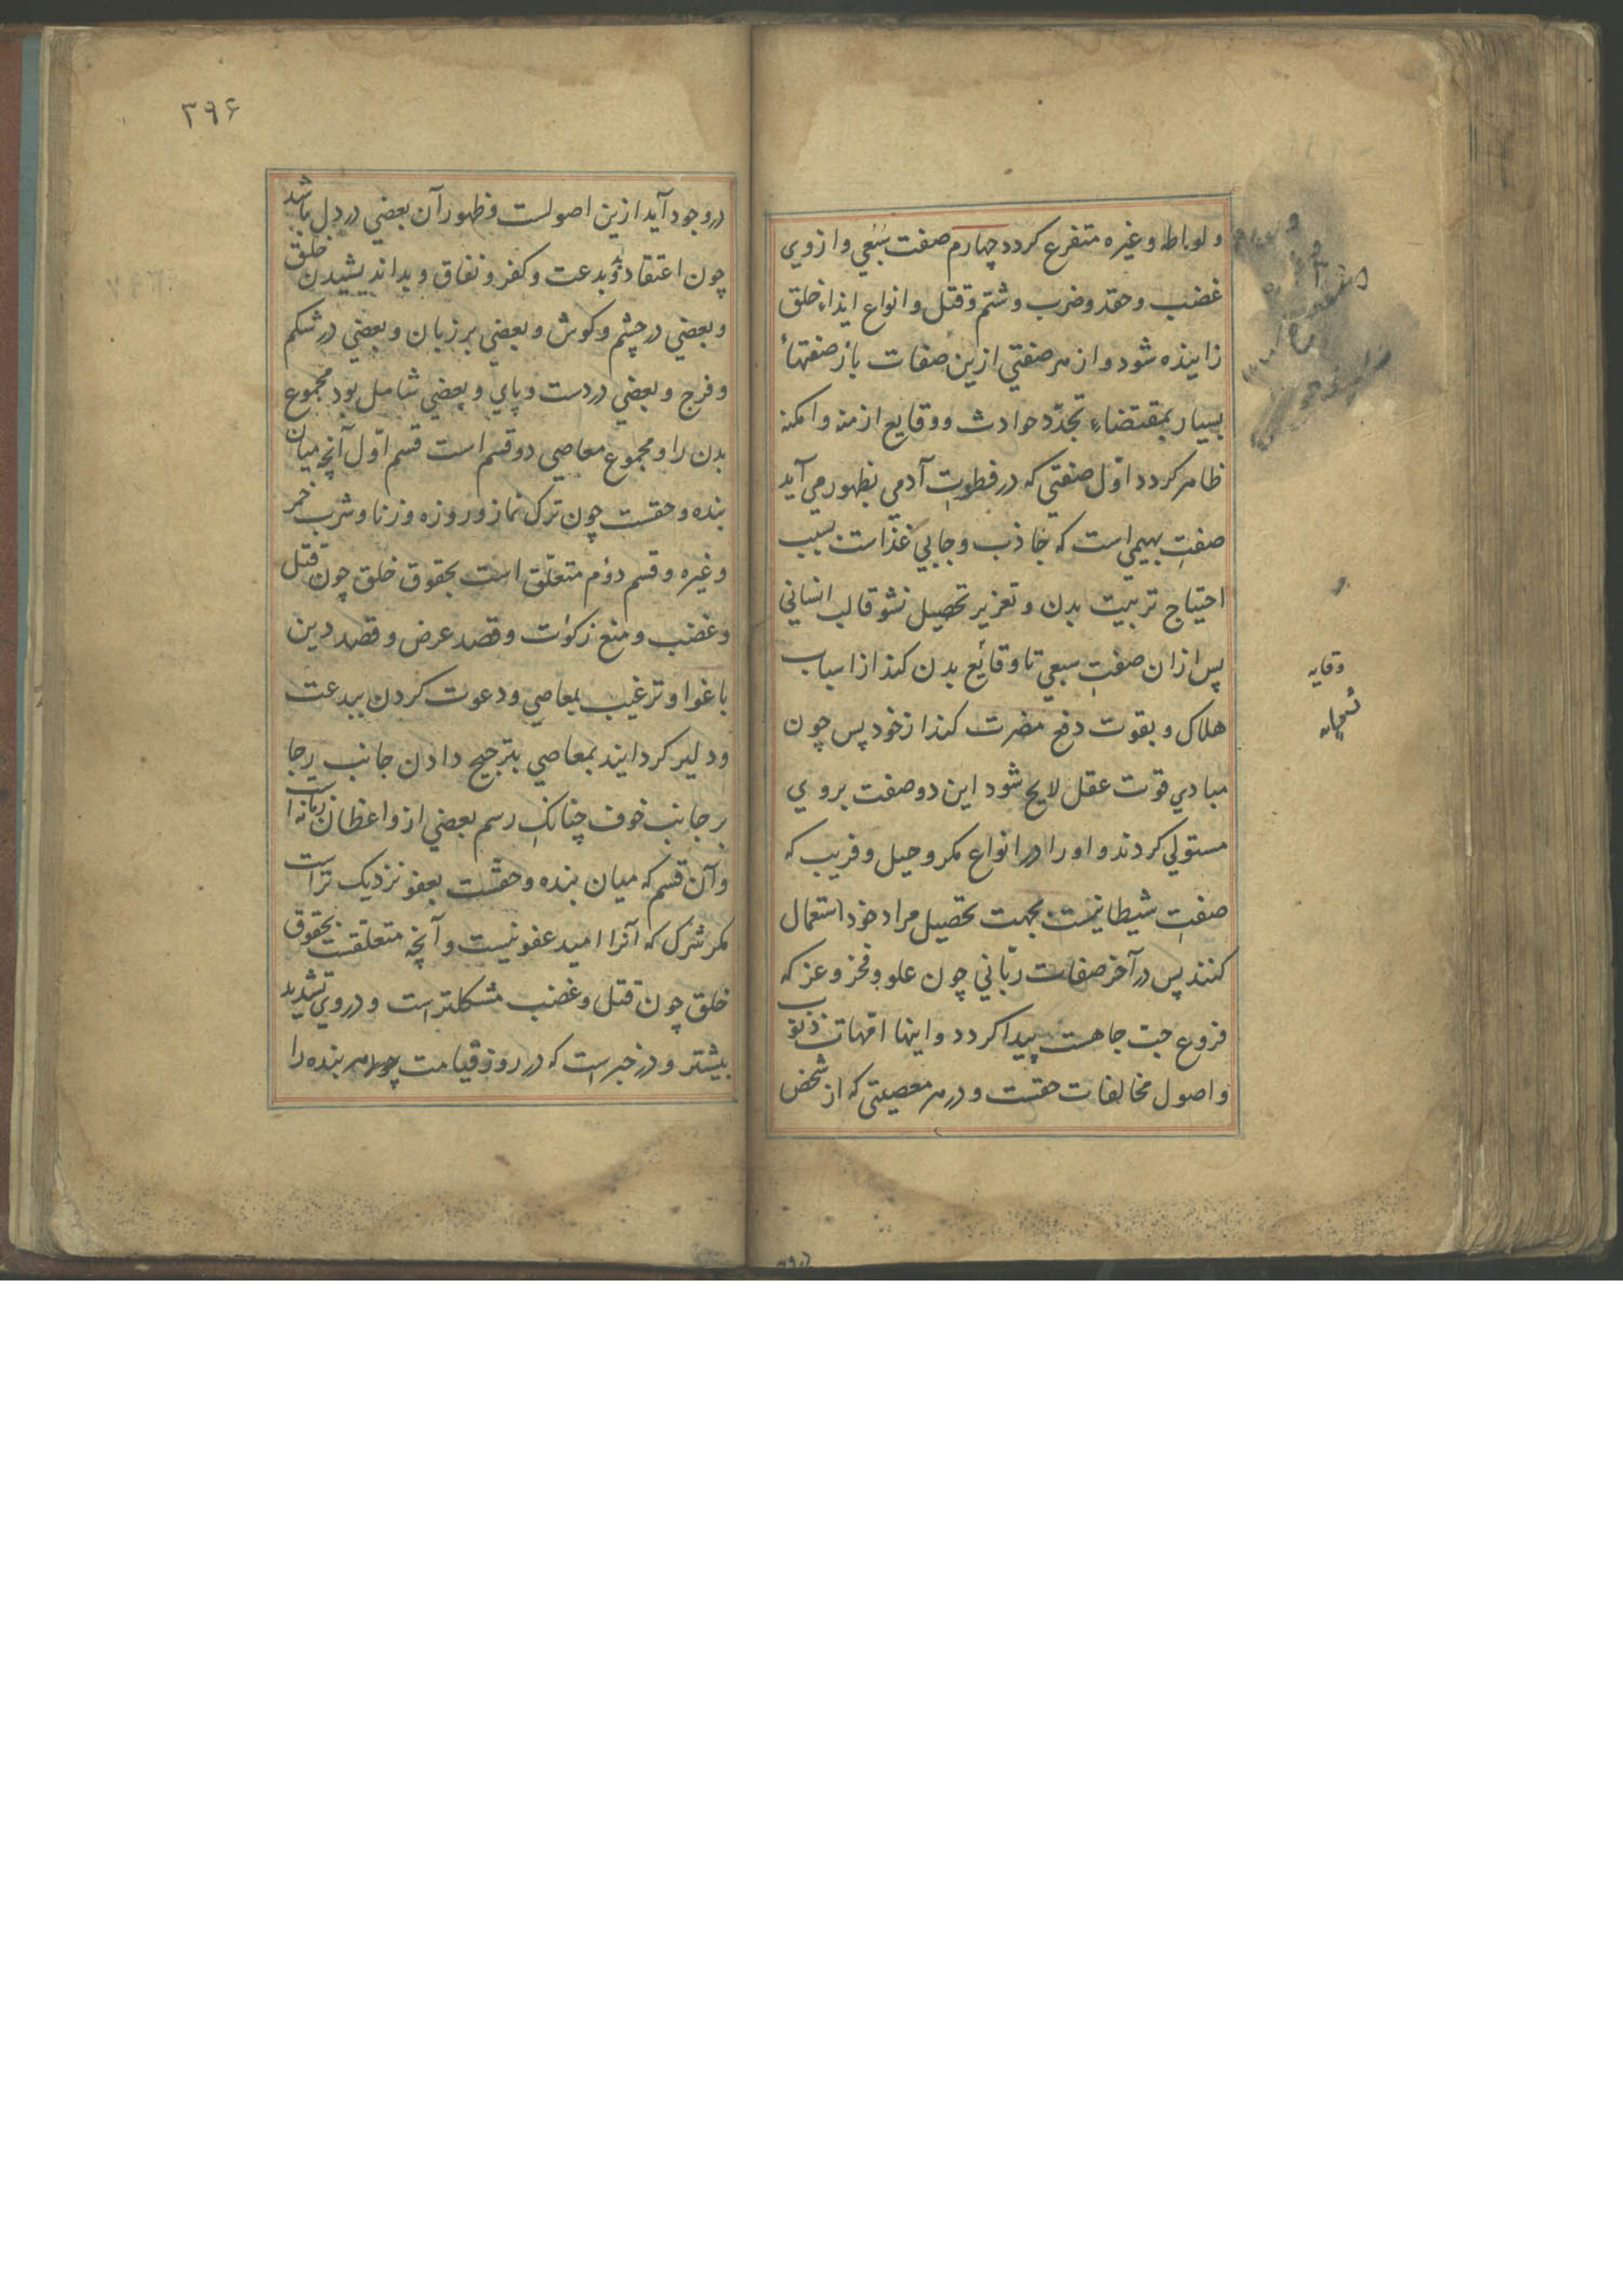 ولواطه وغیره متفرع کردد چهارم صفت سبعی وازوی
غضب وحقد وضرب وشتم وقتل وانواع ایذاء خلق
زاینده شود واز هر صفتی ازین صفات باز صفتهاء
بسیار بمقتضاء تجدّد حوادث ووقایع ازمنه وامکنه
ظاهر کردد اوّل صفتی که در فطرت آدمی بظهور می آید
صفتِ بهیمی است که جاذب وجابی غذاست بسبب
احتیاج تربیت بدن وتعزیر تحصیل نشو قالب انسانی
پس ازان صفتِ سبعی تا وقائع بدن کند از اسباب
هلاک وبقوت دفع مضرت کند از خود پس چون
مبادی قوت عقل لایح شود این دو صفت بروی
مستولی کردند واورا در انواع مکر وحیل وفریب که
صفتِ شیطانیست بجهت تحصیل مراد خود استعمال
کنند پس در آخر صفات ربّانی چون علو وفخر وعز که
فروع حبّ جاهست پیدا کردد واینها امّهات ذنوب
واصول مخالفات حقست ودر هر معصیتی که از شخص
وقایه
۳۹۶
در وجود آید ازین اصولست وظهور آن بعضی در دل باشد
چون اعتقاد بد وبدعت وکفر ونفاق وبد اندیشیدن خلق
وبعضی در چشم وکوش وبعضی بر زبان وبعضی در شکم
وفرج وبعضی در دست وپای وبعضی شامل بود مجموع
بدن را ومجموع معاصی دو قسم است قسم اوّل آنچه میان
بنده وحقست چون ترک نماز وروزه وزنا وشرب خمر
وغیره وقسم دوم متعلّق است بحقوق خلق چون قتل
وغضب ومنع زکوات وقصد عرض وقصد دین
باغوا وترغیب بمعاصی ودعوت کردن ببدعت
ودلیر کردایند بمعاصی بترجیح دادن جانب رجا
بر جانب خوف چنانک رسم بعضی از واعظان زمانه است
وآن قسم که میان بنده وحقست بعفو نزدیک تر است
مکر شرک که آنرا امید عفو نیست وآنچه متعلقست بحقوق
خلق چون قتل وغضب مشکلتر است ودر وی تشدید
بیشتر ودر خبر است که در روز قیامت هر بنده را